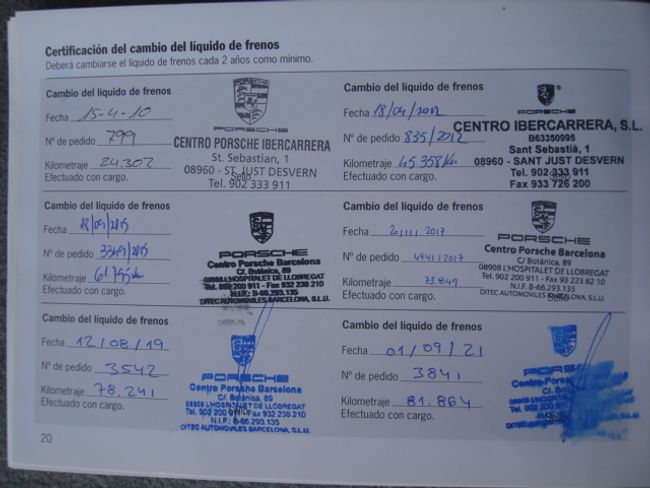 Certificación del cambio del líquido de frenos
Deberá cambiarse el líquido de frenos cada 2 años como mínimo.
Cambio del líquido de frenos
Fecha 15-4-10
Nº de pedido 799
Kilometraje 24.302
Efectuado con cargo.
PORSCHE
CENTRO PORSCHE IBERCARRERA
St. Sebastian, 1
08960 - ST. JUST DESVERN
Tel. 902 333 911
Sello
Cambio del líquido de frenos
Fecha 18/04/2012
Nº de pedido 835/2012
Kilometraje 45.358 Km
Efectuado con cargo.
PORSCHE
CENTRO IBERCARRERA, S.L.
B63350995
Sant Sebastià, 1
08960 - SANT JUST DESVERN
Tel. 902 333 911
Fax 933 726 200
Sello
Cambio del líquido de frenos
Fecha 18/09/2015
Nº de pedido 3349/2015
Kilometraje 61.795 Km
Efectuado con cargo.
PORSCHE
Centro Porsche Barcelona
C/. Botánica, 89
08908 L'HOSPITALET DE LLOBREGAT
Tel. 902 200 911 - Fax 932 238 210
N.I.F.: B-66.293.135
DITEC AUTOMÓVILES BARCELONA, S.L.U.
Cambio del líquido de frenos
Fecha
Nº de pedido 4941/2017
Kilometraje 73.849
Efectuado con cargo.
PORSCHE
Centro Porsche Barcelona
C/ Botánica, 89
08908 L'HOSPITALET DE LLOBREGAT
Tel. 902 200 911 - Fax 93 223 82 10
N.I.F.: B-66.293.135
DITEC AUTOMÓVILES BARCELONA, S.L.U.
Sello
Cambio del líquido de frenos
Fecha 12/08/19
Nº de pedido 3542
Kilometraje 78.241
Efectuado con cargo.
PORSCHE
Centro Porsche Barcelona
C/. Botánica, 89
08908 L'HOSPITALET DE LLOBREGAT
Tel. 902 200 911 - Fax 932 238 210
N.I.F.: B-66.293.135
DITEC AUTOMÓVILES BARCELONA, S.L.U.
Sello
Cambio del líquido de frenos
Fecha 01/09/21
Nº de pedido 3841
Kilometraje 81.864
Efectuado con cargo.
PORSCHE
Centro
C/.
08908
Tel. 902 200
N.I.F.
DITEC
Sello
20